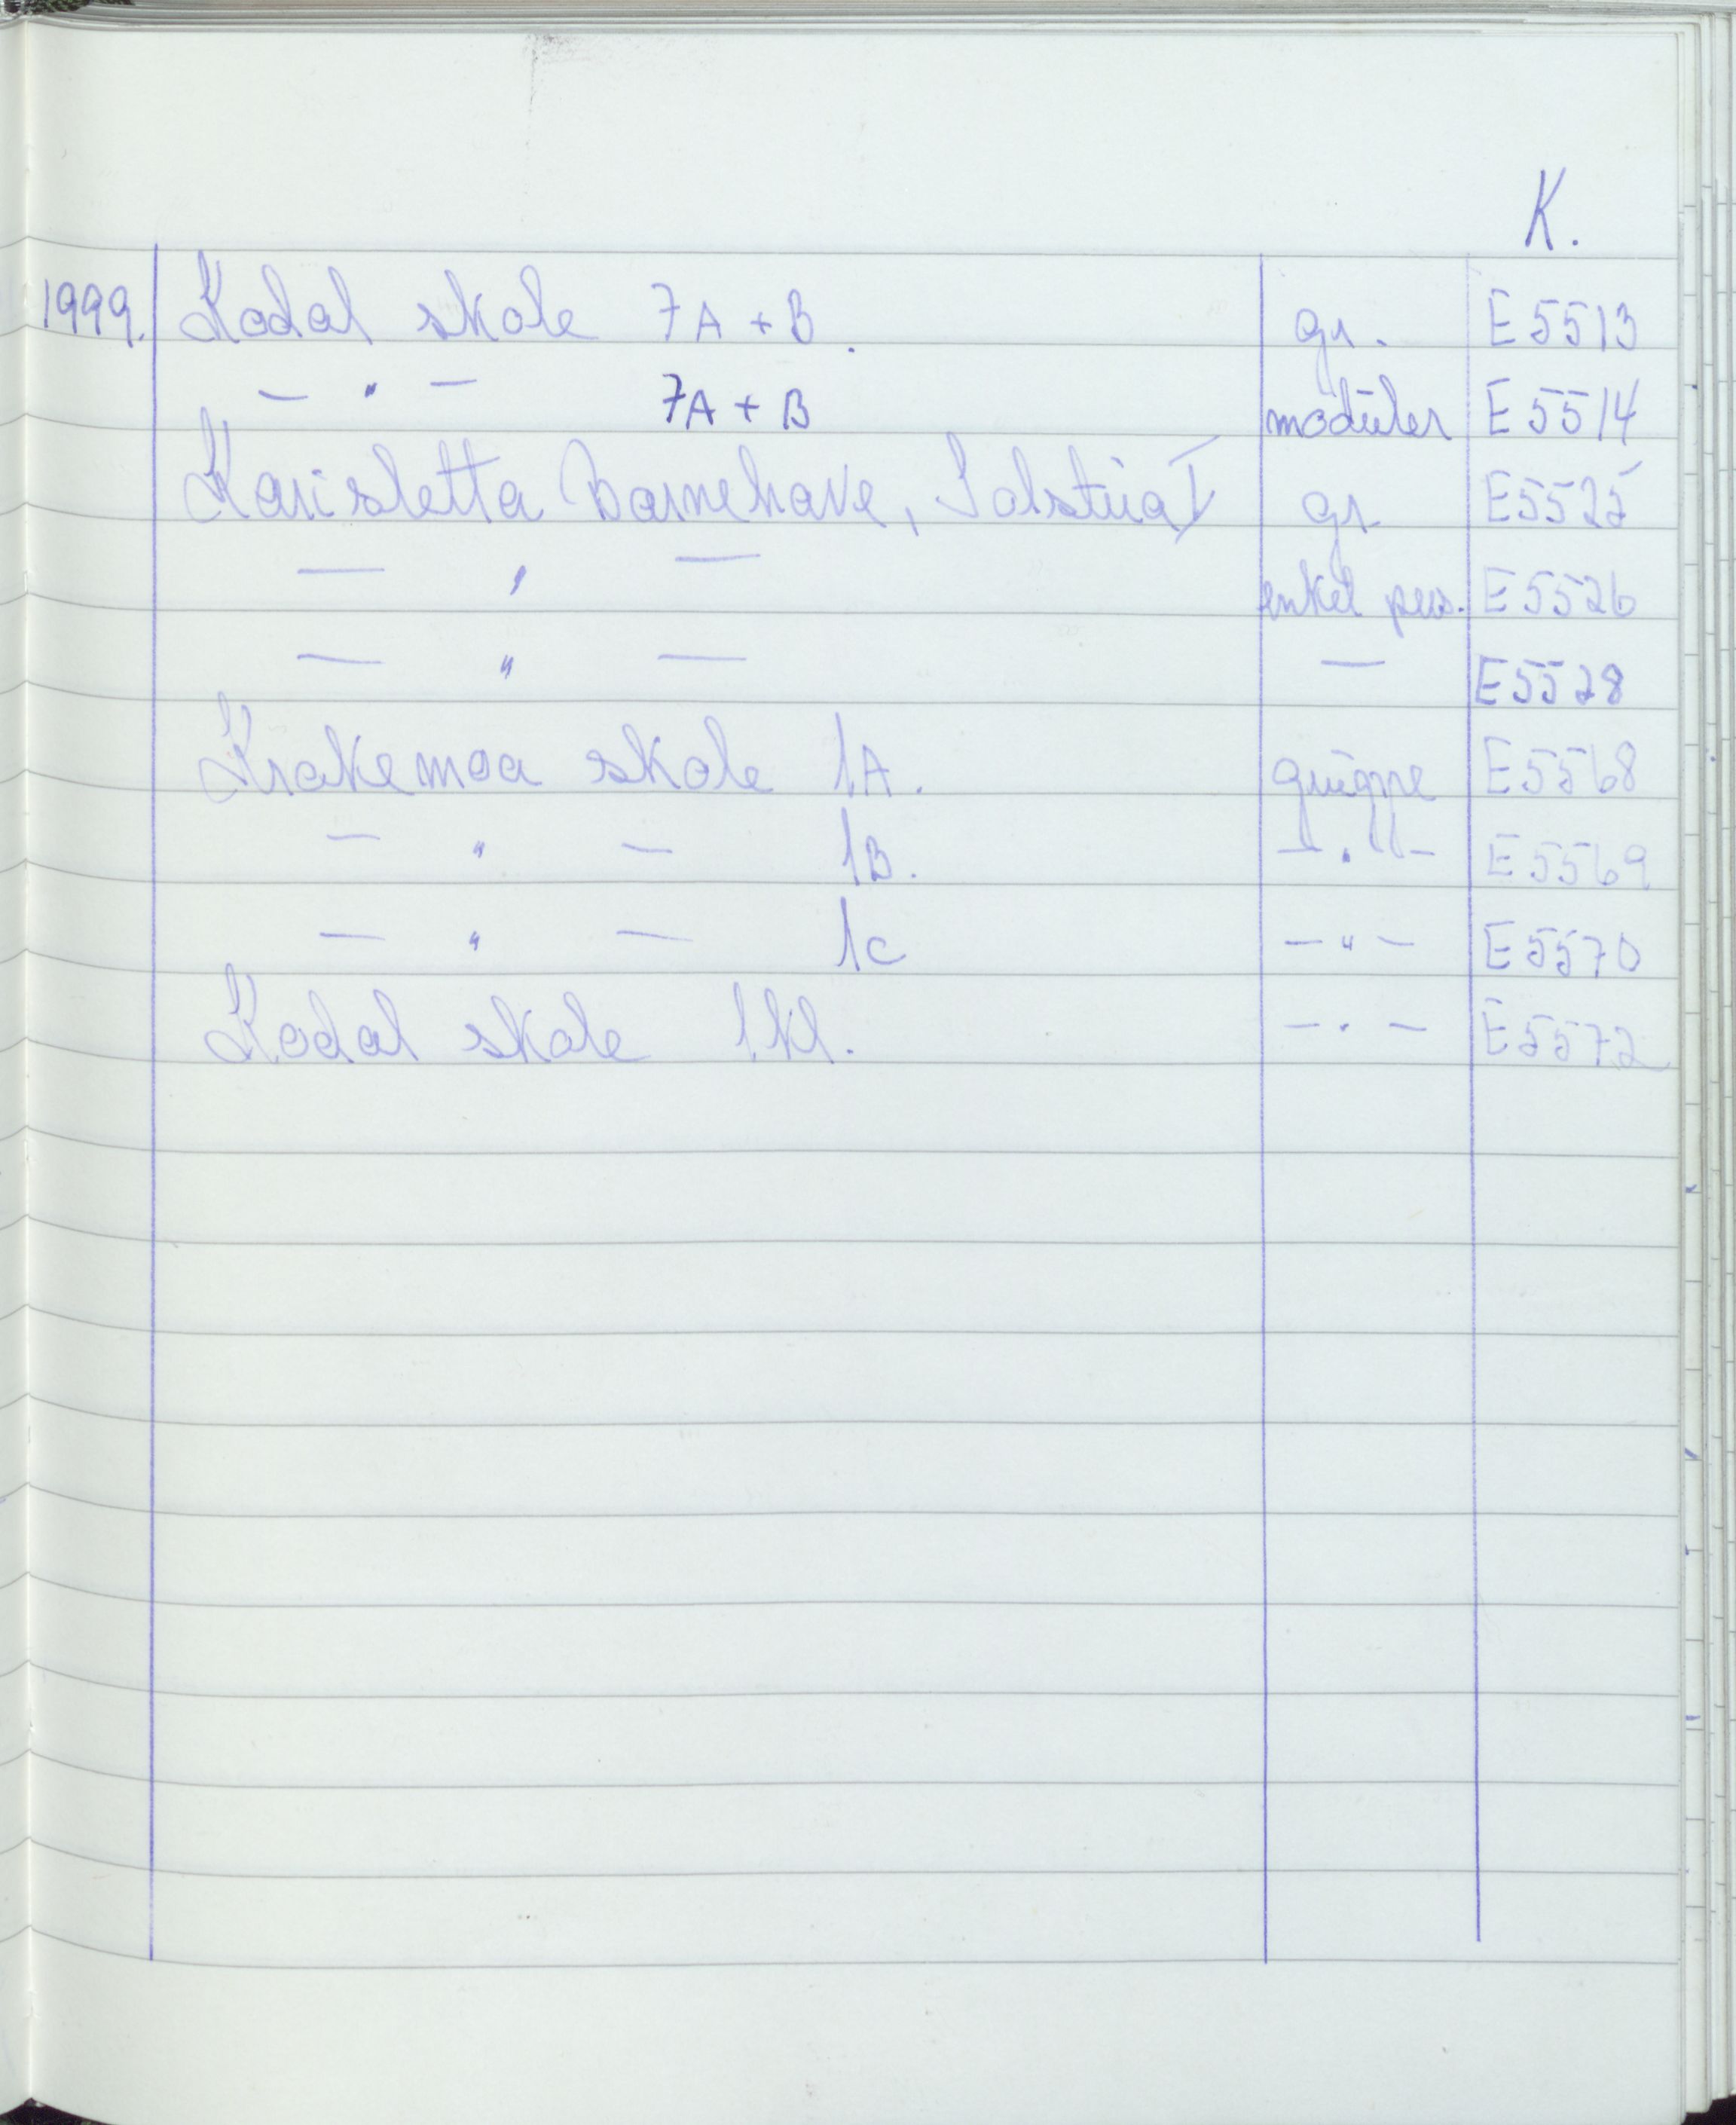 K.
1999. Kodal skole 7A + B. gr. E5513
— " — 7A + B moduler E5514
Karisletta Barnehave, gr E5525
— " — enkel pers. E5526
— " — — E5528
Krakemoa skole 1A. gruppe E5568
— " — 1B. — " — E5569
— " — 1C — " — E5570
Kodal skole 1.kl. — " — E5572